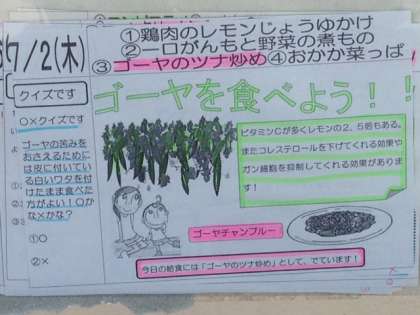 7/2(木)
①鶏肉のレモンじょうゆかけ
②一口がんもと野菜の煮もの
③ゴーヤのツナ炒め④おかか菜っぱ
クイズです
ゴーヤを食べよう!!
○×クイズです
ゴーヤの苦みを
おさえるために
は皮に付いてい
る白いワタを付
けたまま食べた
方がよい!○か
な×かな?
①○
②×
ビタミンCが多くレモンの2、5倍もある。
またコレステロールを下げてくれる効果や
ガン細胞を抑制してくれる効果がありま
す!
ゴーヤチャンプルー
今日の給食には「ゴーヤのツナ炒め」として、でています!